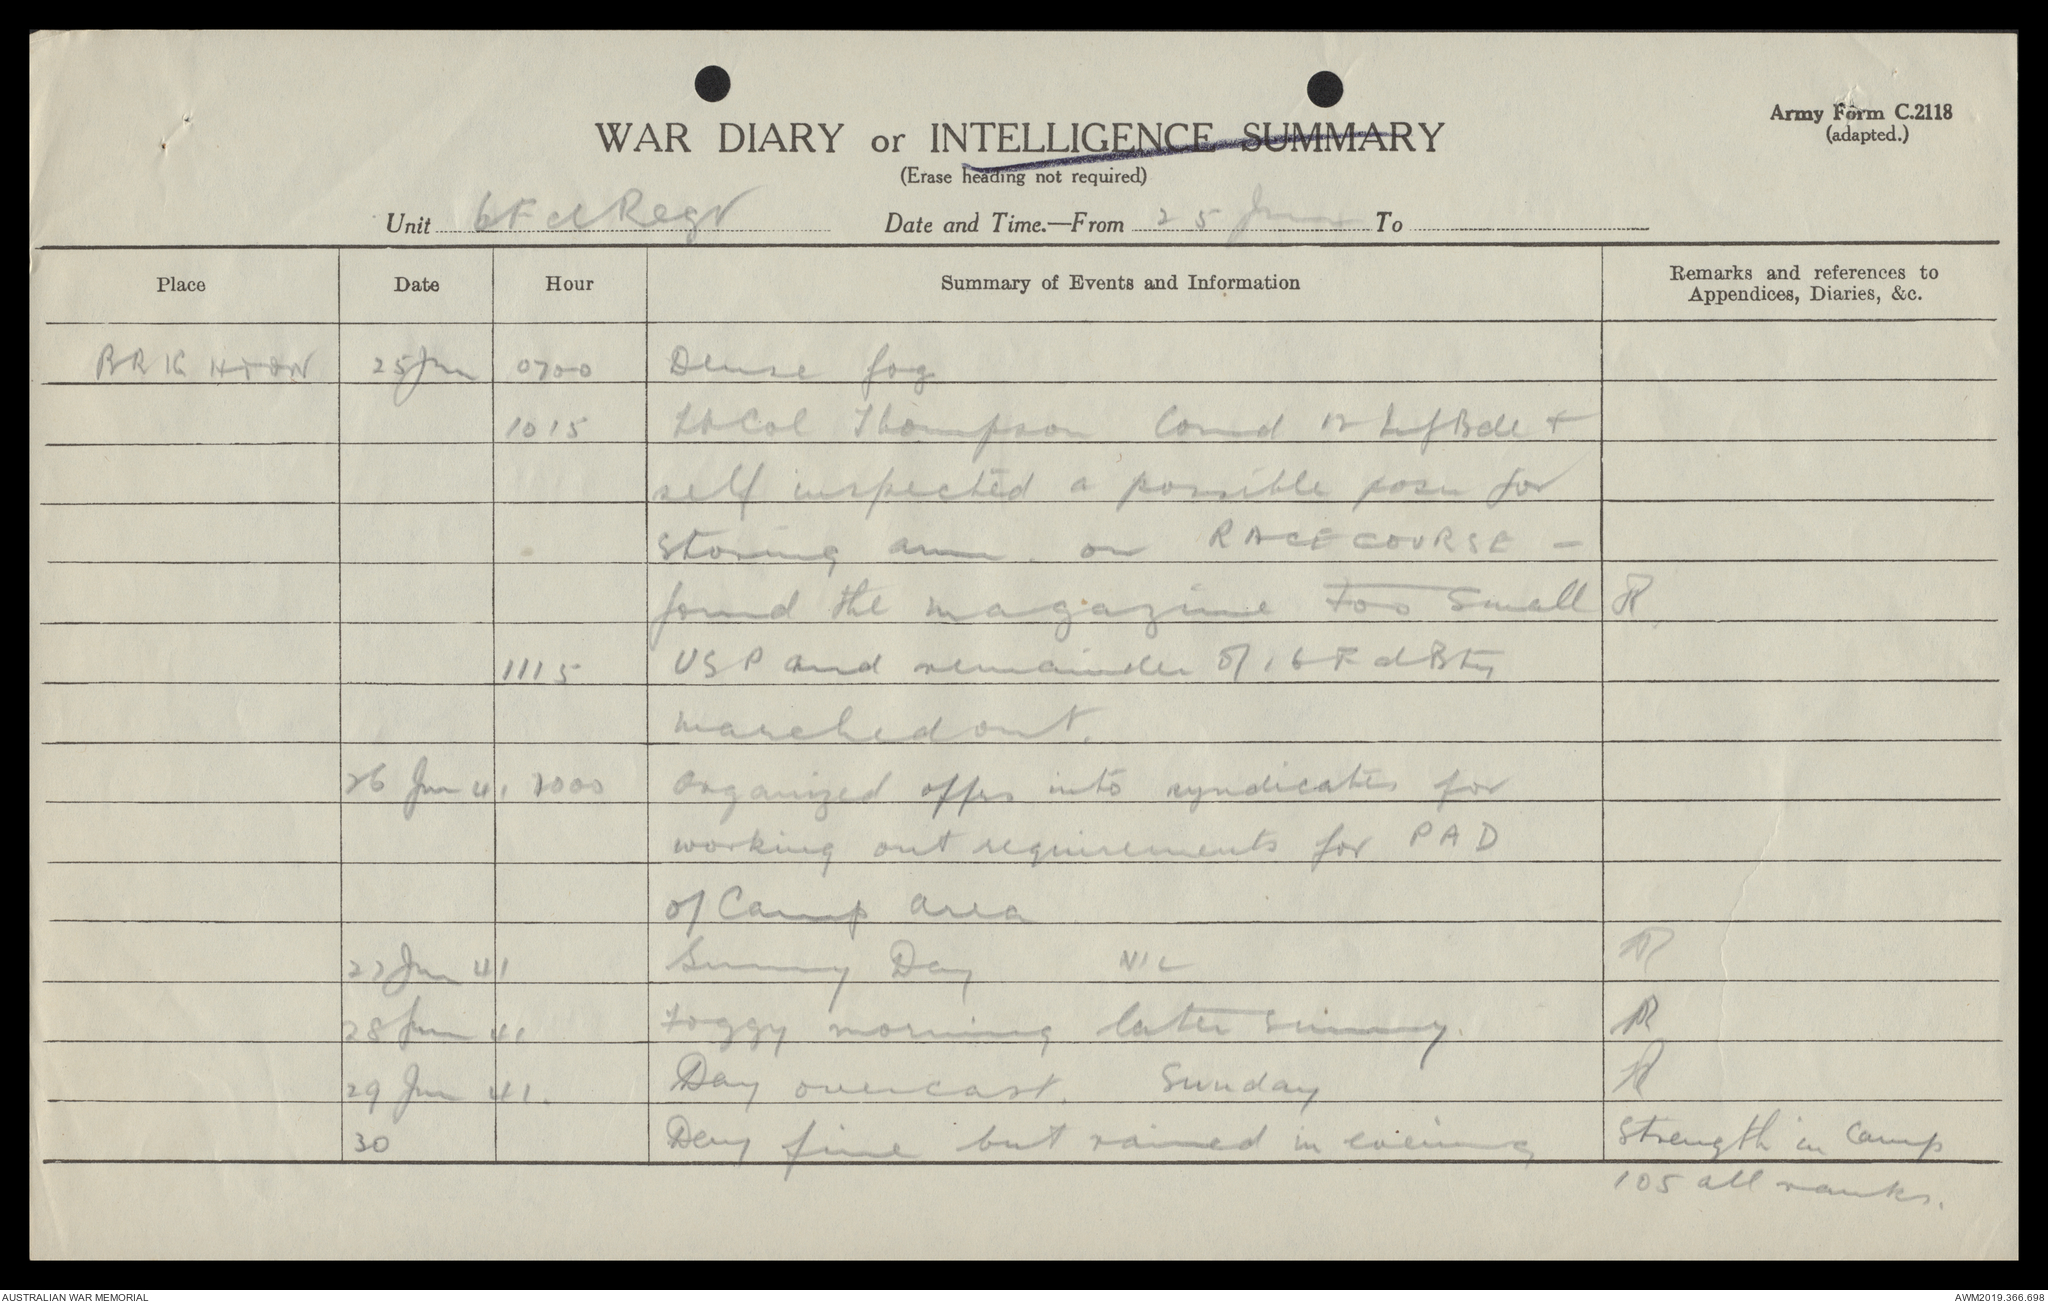 Army Form C.2118
(adapted.)
WAR DIARY or INTELLIGENCE SUMMARY
(Erase heading not required)
Unit 6 Fd Regt Date and Time.—From 25 June To
Place Date Hour Summary of Events and Information Remarks and references to
Appendices, Diaries, &c.
BRIGHTON 25 Jun 0700 Dense fog
1015 Lt Col Thompson Comd 12 Inf Bde +
self inspected a possible posn for
storing amn. on RACECOURSE -
found the magazine too small
1115 VSP and remainder of 16 Fd Bty
marched out.
26 Jun 41 2000 Organized offrs into syndicates for
working out requirements for PAD
of Camp area
27 Jun 41 Sunny Day NIL
28 Jun 41 Foggy morning later sunny.
29 Jun 41. Day overcast. Sunday
30 Day fine but rained in evening Strength in Camp
105 all ranks.
AUSTRALIAN WAR MEMORIAL AWM2019.366.698